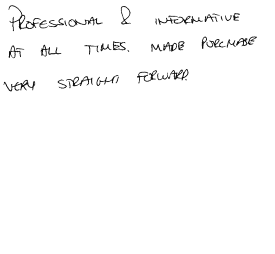 PROFESSIONAL & INFORMATIVE
AT ALL TIMES. MADE PURCHASE
VERY STRAIGHT FORWARD.